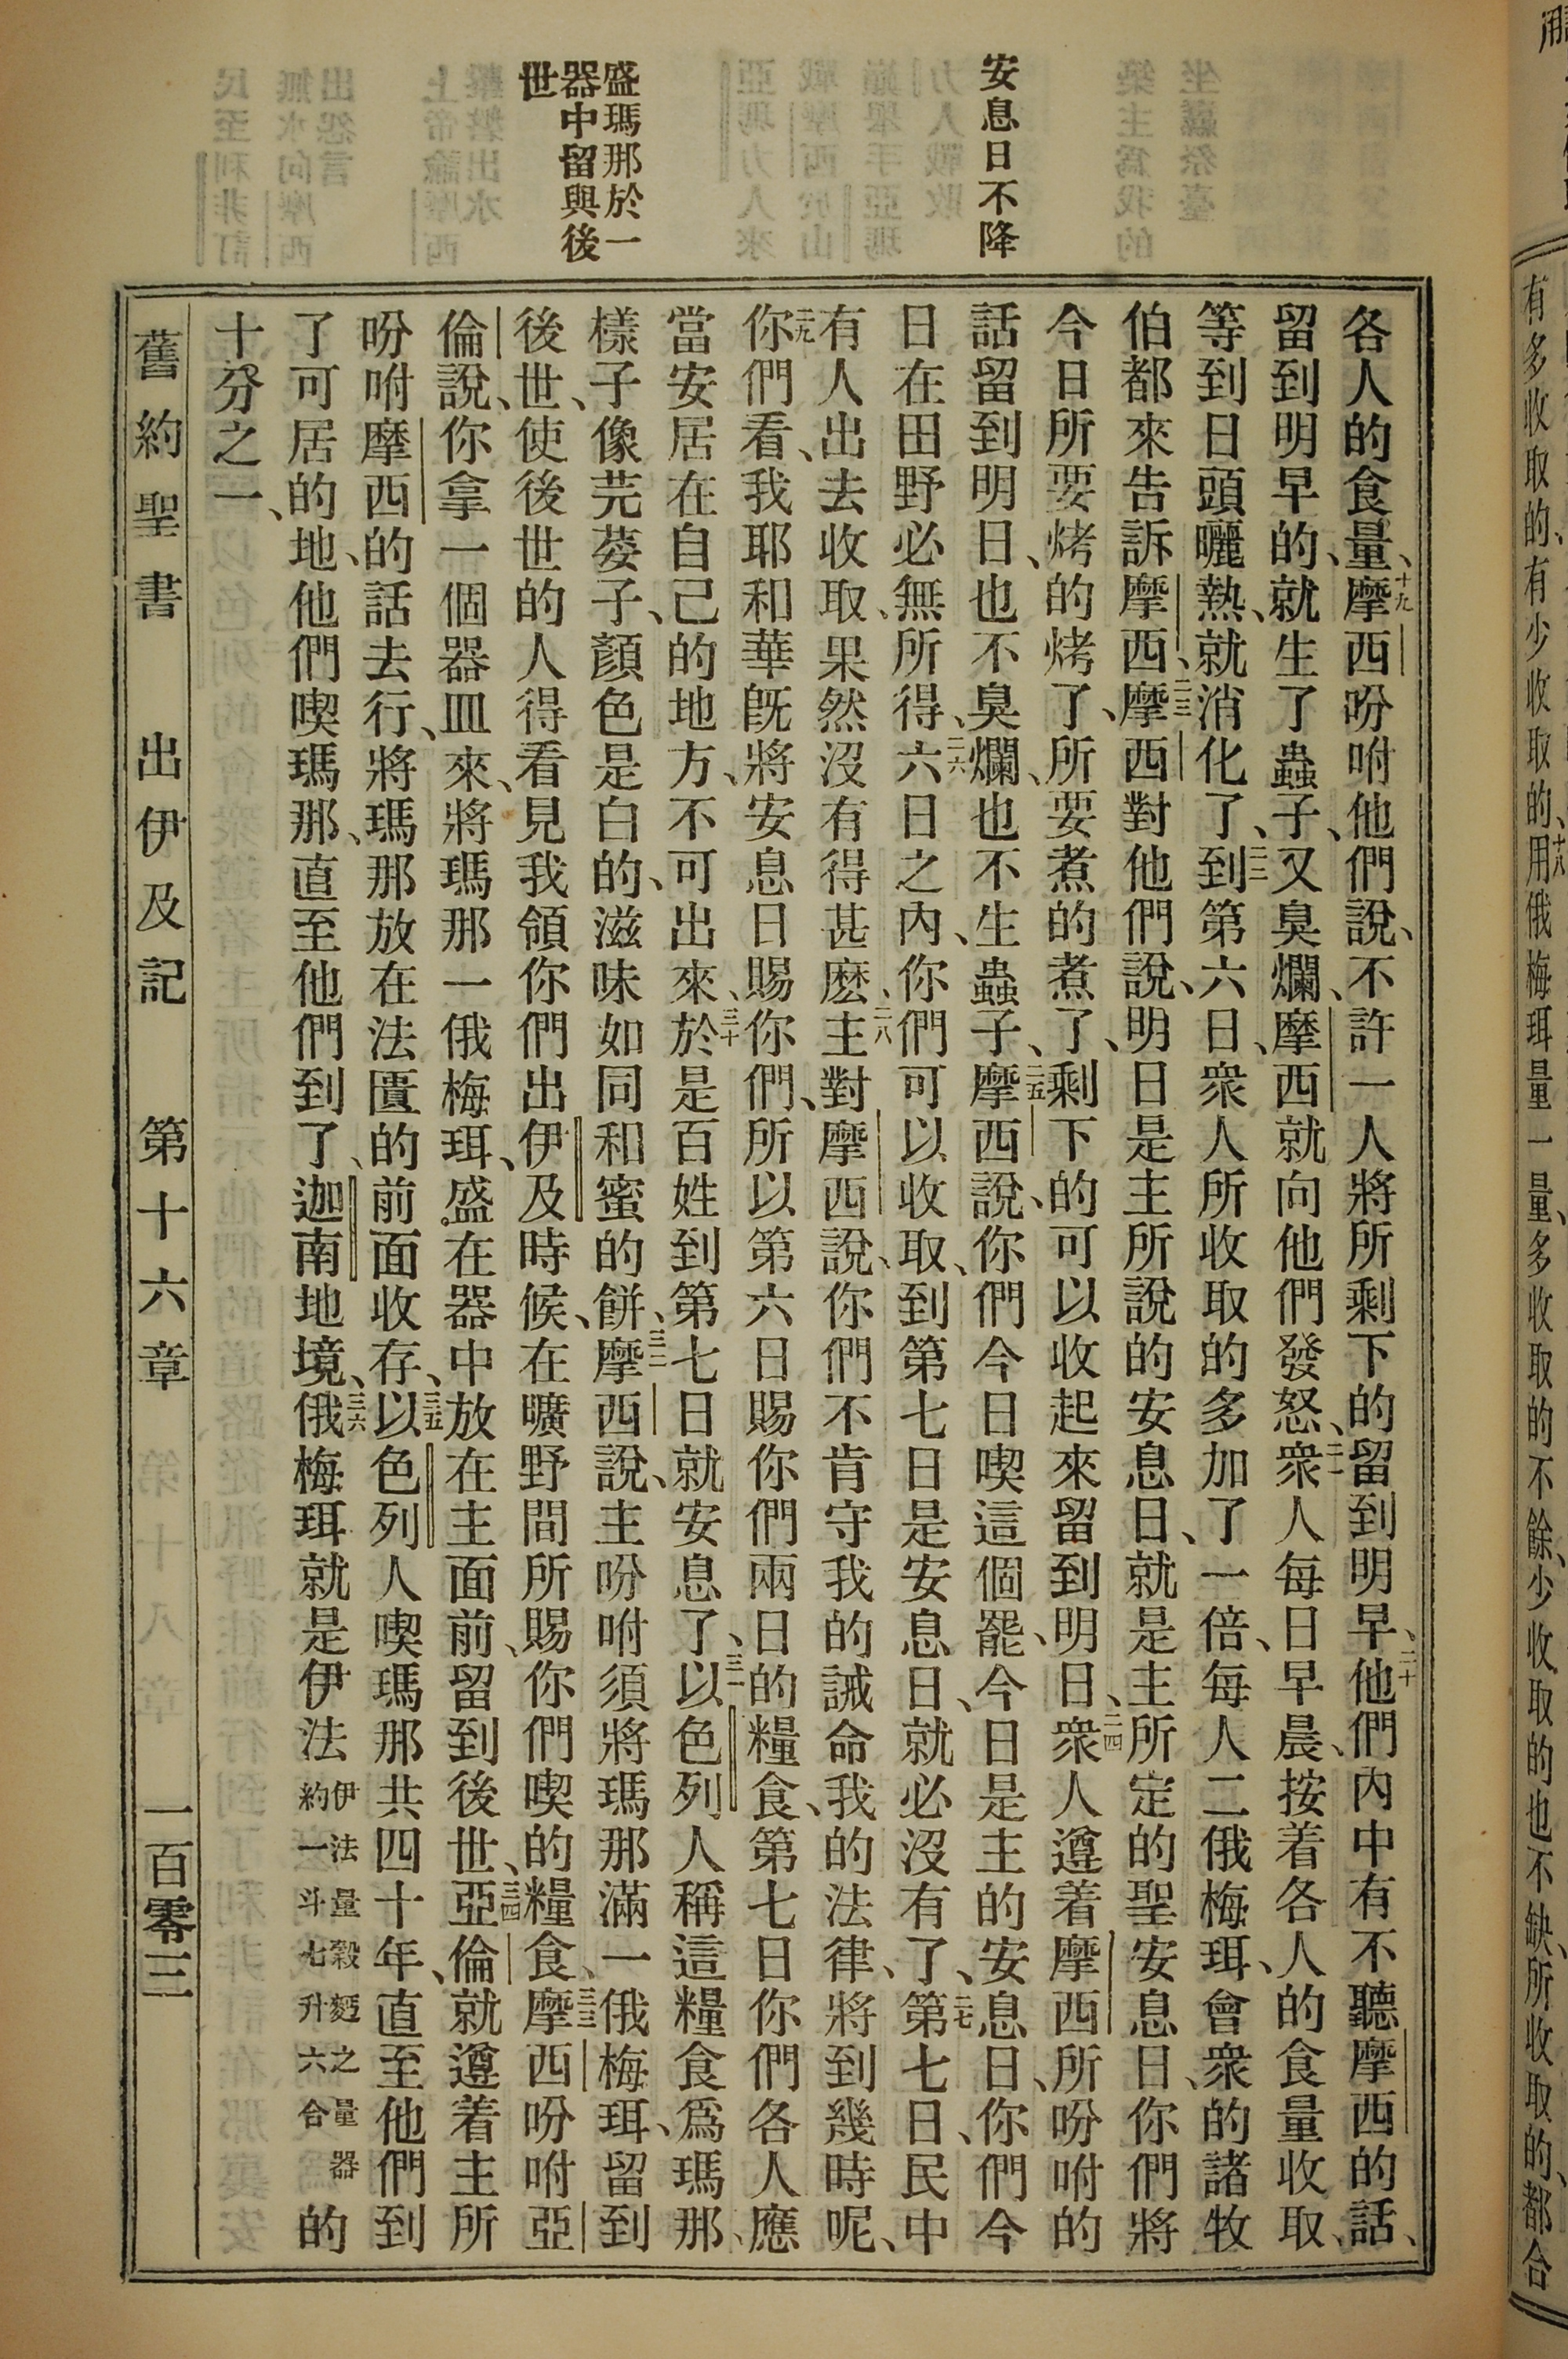 安息日不降
盛瑪那於一
器中留與後
世
各人的食量、十九摩西吩咐他們說、不許一人將所剩下的留到明早、二十他們內中有不聽摩西的話、
留到明早的、就生了蟲子、又臭爛、摩西就向他們發怒、二一衆人每日早晨、按着各人的食量收取、
等到日頭曬熱、就消化了、二二到第六日、衆人所收取的多加了一倍、每人二俄梅珥、會衆的諸牧
伯都來告訴摩西、二三摩西對他們說、明日是主所說的安息日、就是主所定的聖安息日、你們將
今日所要烤的烤了、所要煮的煮了、剩下的可以收起來留到明日、二四衆人遵着摩西所吩咐的
話留到明日、也不臭爛、也不生蟲子、二五摩西說、你們今日喫這個罷、今日是主的安息日、你們今
日在田野必無所得、二六六日之內、你們可以收取、到第七日是安息日、就必沒有了、二七第七日、民中
有人出去收取、果然沒有得甚麽、二八主對摩西說、你們不肯守我的誡命我的法律、將到幾時呢、
二九你們看、我耶和華旣將安息日賜你們、所以第六日賜你們兩日的糧食、第七日你們各人應
當安居在自己的地方、不可出來、三十於是百姓到第七日就安息了、三一以色列人稱這糧食爲瑪那、
樣子像芫荽子、顏色是白的、滋味如同和蜜的餅、三二摩西說、主吩咐須將瑪那滿一俄梅珥、留到
後世、使後世的人得看見我領你們出伊及時候、在曠野間所賜你們喫的糧食、三三摩西吩咐亞
倫說、你拿一個器皿來、將瑪那一俄梅珥、盛在器中放在主面前、留到後世、三四亞倫就遵着主所
吩咐摩西的話去行、將瑪那放在法匱的前面收存、三五以色列人喫瑪那共四十年、直至他們到
了可居的地、他們喫瑪那、直至他們到了、迦南地境、三六俄梅珥就是伊法伊法量穀麪之量器約一斗七升六合的
十分之一、
舊約聖書 出伊及記 第十六章 一百零三
有多收取的、有少收取的、十八用俄梅珥量一量、多收取的不餘、少收取的也不缺、所收取的、都合